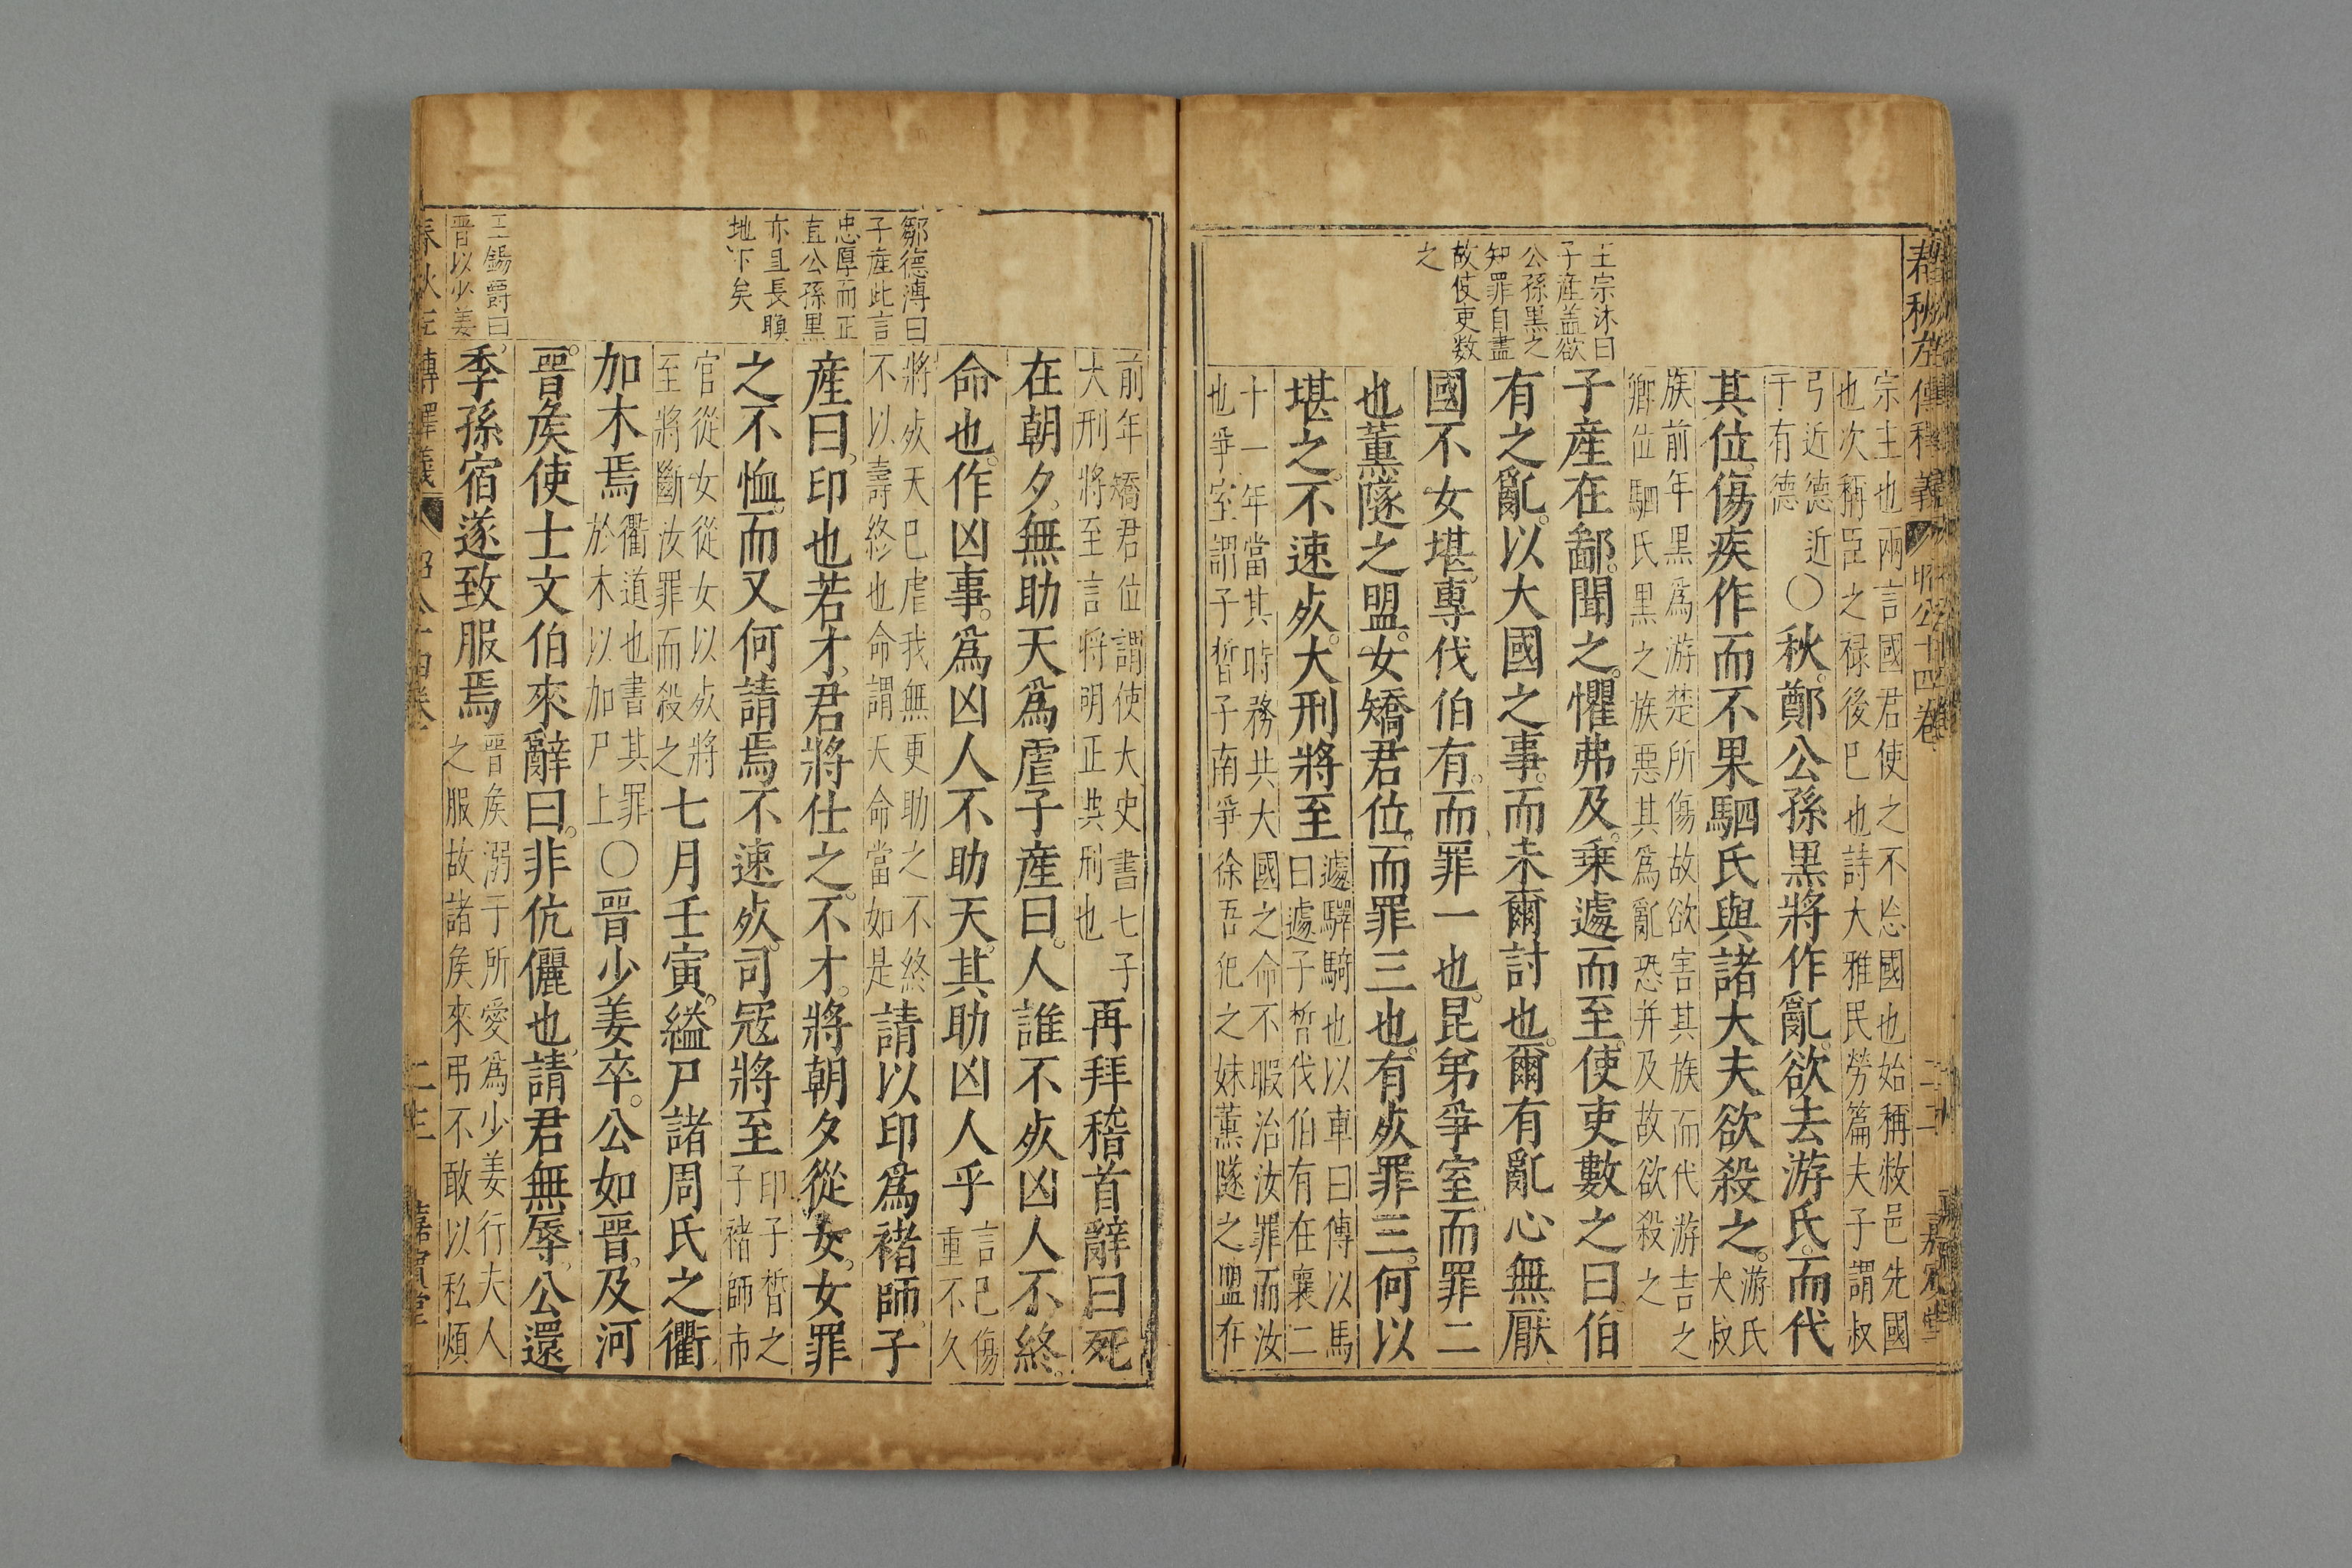 春秋左傳釋義 昭公十四卷 二十二 嘉賓堂
王宗沐曰
子產蓋欲
公孫黑之
知罪自盡
故使吏数
之
宗主也兩言國君使之不忘國也始稱敝邑先國
也次稱臣之禄後已也詩大雅民勞篇夫子謂叔
弓近德近
于有德
○秋鄭公孫黑將作亂欲去游氏而代
其位傷疾作而不果駟氏與諸大夫欲殺之游氏
大叔
族前年黑爲游楚所傷故欲害其族而代游吉之
卿位駟氏黑之族惡其爲亂恐并及故欲殺之
子產在鄙聞之懼弗及乗遽而至使吏數之曰伯
有之亂以大國之事而未爾討也爾有亂心無厭
國不女堪專伐伯有而罪一也昆弟爭室而罪二
也薰隧之盟女矯君位而罪三也有死罪三何以
遽驛騎也以車曰傳以馬
曰遽子晳伐伯有在襄二
堪之不速死大刑將至
十一年當其時務共大國之命不暇治汝罪而汝
也爭室謂子晳子南爭徐吾犯之妹薰隧之盟在
前年矯君位謂使大史書七子
大刑將至言將明正典刑也
再拜稽首辭曰死
在朝夕無助天爲虐子產曰人誰不死凶人不終
命也作凶事爲凶人不助天其助凶人乎
言已傷
重不久
將死天已虐我無更助之不終
不以壽終也命謂天命當如是
請以印爲褚師子
產曰印也若才君將仕之不才將朝夕從女女罪
之不恤而又何請焉不速死司寇將至
印子晳之
子褚師市
官從女從女以死將
至將斷汝罪而殺之
七月壬寅縊尸諸周氏之衢
加木焉
衢道也書其罪
於木以加尸上
○晉少姜卒公如晉及河
晉侯使士文伯來辭曰非伉儷也請君無辱公還
季孫宿遂致服焉
晉侯溺于所愛爲少姜行夫人
之服故諸侯來弔不敢以私煩
鄒德溥曰
子產此言
忠厚而正
直公孫黑
亦且長瞑
地下矣
王錫爵曰
晉以少姜
春秋左傳釋義 昭公十四卷 二十三 嘉賓堂